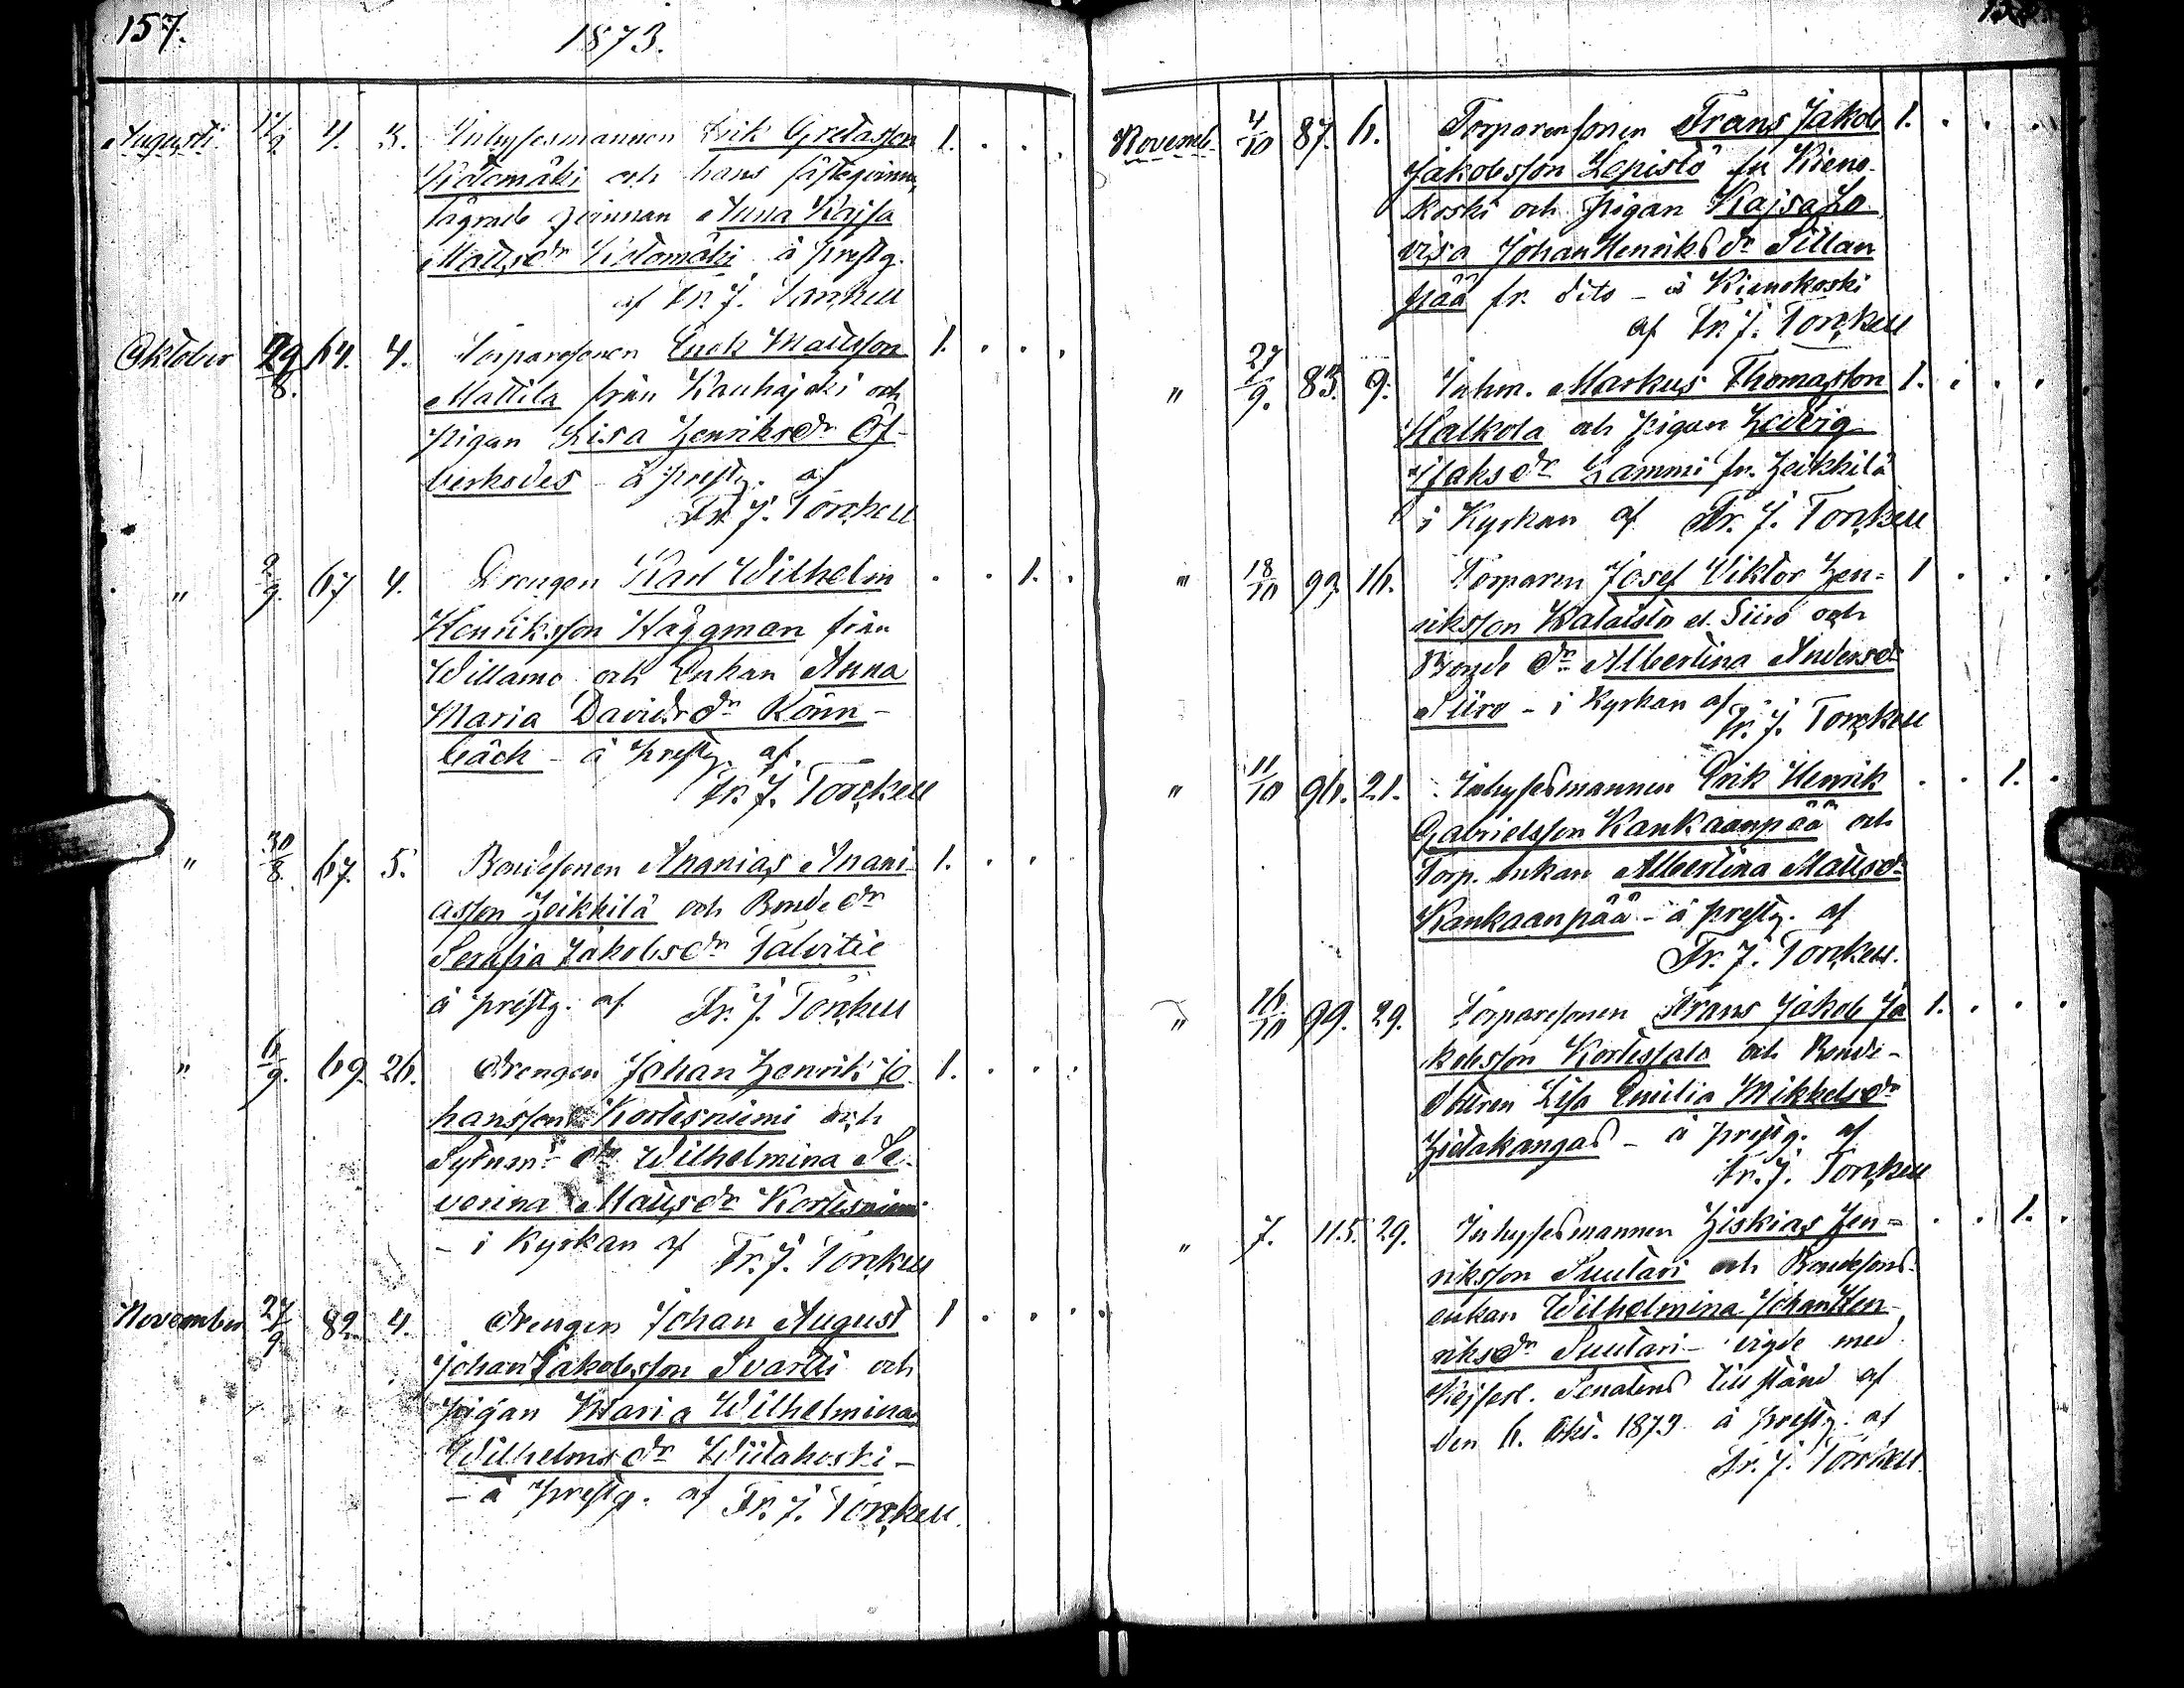 157.
1873.
Augusti 4. 3. Inhysesmannen Erik Gretasson 1. . . .
Kotomäki och hans fästeqvinna,
lägrade qvinnan Anna Kajsa
Mattsdr Kotomäki å prestg.
af Fr. J. Torckell
Oktober 29/8. 64. 4. Torparesonen Enok Mattsson 1. . . .
Mattila från Kauhajoki och
pigan Lisa Henriksdr Öf-
verkodes å prestg. af
Fr. J. Torckell
" 2/9. 67 4. Drengen Karl Wilhelm . . 1. .
Henriksson Häggman från
Willamo och Enkan Anna
Maria Davidsdr Könn-
bäck - å prestg. af.
Fr. J. Torckell
" 30/8. 67. 5. Bondesonen Ananias Anani- 1. . .
asson Heikkilä och Bonde dr
Serafia Jakobsdr Talvitie
å prestg. af Fr. J. Torckell
" 6/9. 69. 26. drengen Johan Henrik Jo- 1. . . .
hansson Kortesniemi och
Sytnens dr Wilhelmina Se-
verina Mattsdr Kortesniemi
- i Kyrkan af Fr. J. Torckell
November 27/9. 82. 4. drengen Johan August 1 . . .
Johan Jakobsson Svartti och
pigan Maria Wilhelmina
Wilhelmsdr Wiitakoski -
- å prestg. af Fr. J. Torckell.
Novemb. 4/10 87. 6. Torparesonen Frans Jakob 1. . . .
Jakobsson Lepistö fr Kieno-
koski och pigan Kajsa Lo-
visa Johan Henriksdr Sillan-
pää fr. dito - å Kienokoski
af Fr. J. Torckell
" 27/9. 83. 9. Inhm. Markus Thomasson 1. . . .
Kalkola och pigan Hedvig
Isaksdr Lammi fr. Heikkilä
i Kyrkan af Fr. J. Torckell
" 18/10 99. 16. Torparen Josef Viktor Hen- 1 . . .
riksson Kataisto el. Siiro och
Bonde dr Albertina Andersdr
Siiro - i Kyrkan af
Fr. J. Torckell
" 11/10 96. 21. Inhysesmannen Erik Henrik . . 1. .
Gabrielsson Kankaanpää och
Torp. enkan Albertina Mattsdr
Kankaanpää - å prestg. af
Fr. J. Torckell.
" 16/10 99. 29. Torparesonen Frans Jakob Ja- 1. . . .
kobsson Kortessalo och Bonde-
dottren Lisa Emilia Mikkelsdr
Hietakangas - å prestg. af
Fr. J. Torckell
" 7. 115. 29. Inhysesmannen Hiskias Hen- . . 1. .
riksson Suutari och Bondesons-
enkan Wilhelmina Johan Hen-
riksdr Suutari - vigde med
Kejserl. Senatens tillstånd af
den 6. Okt. 1873 å prestg. af
Fr. J. Torckell.